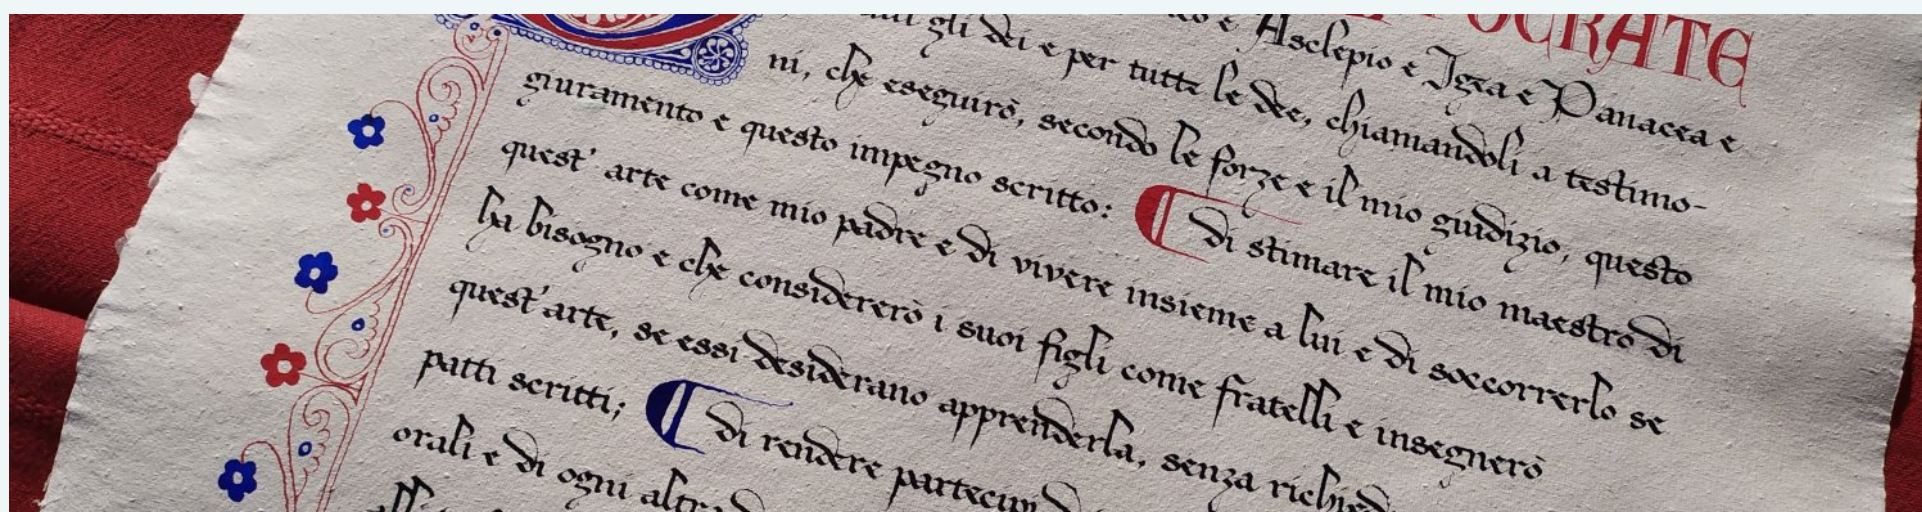 POCRATE
e Asclepio e Igea e Panacea e
gli dei e per tutte le dee, chiamandoli a testimo-
ni, che eseguirò, secondo le forze e il mio giudizio, questo
giuramento e questo impegno scritto: di stimare il mio maestro di
quest' arte come mio padre e di vivere insieme a lui e di soccorrerlo se
ha bisogno e che considererò i suoi figli come fratelli e insegnerò
quest'arte, se essi desiderano apprenderla, senza richied
patti scritti; di rendere partecipi
orali e di ogni altra